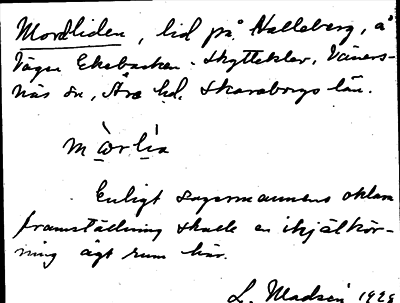 Mordliden, lid på Halleberg, å
vägen Ekebacken - Skytteklev, Väners-
näs sn, Åse hd. Skaraborgs län.
mòrlìa
Enligt sagesmannens oklara
framställning skulle en ihjälkör-
ning ägt rum här.
L. Madsén 1928